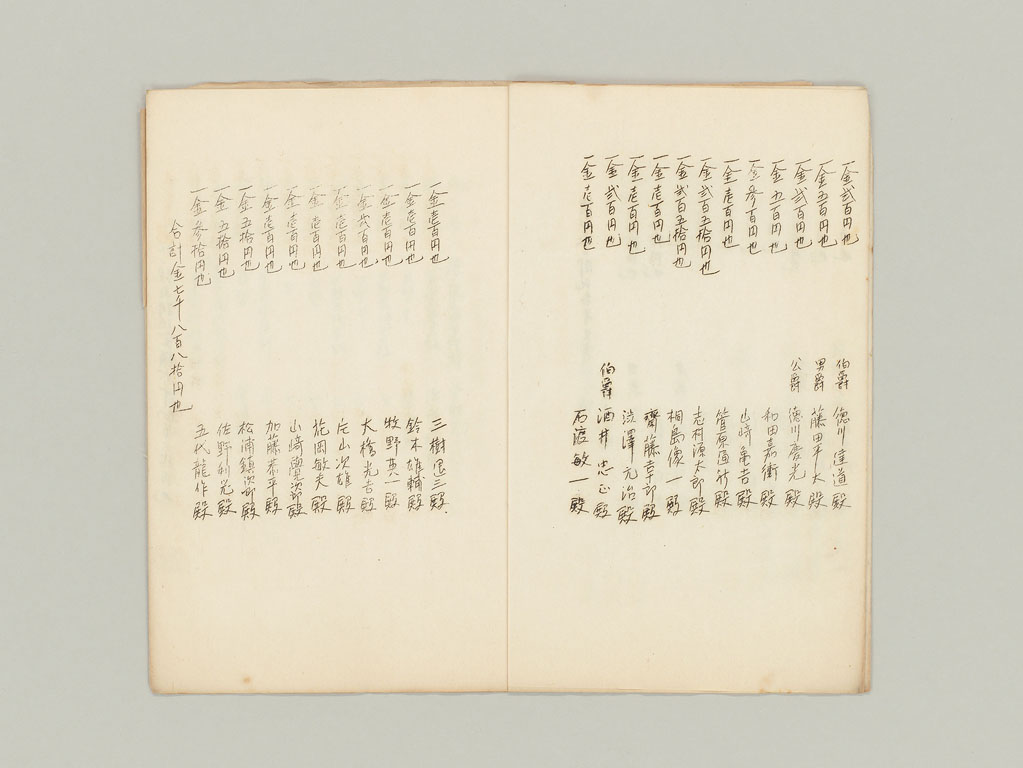 一金弐百円也 伯爵 徳川達道殿
一金五百円也 男爵 藤田平太殿
一金弐百円也 公爵 徳川慶光殿
一金五百円也 和田嘉衛殿
一金参百円也 山崎亀吉殿
一金壱百円也 菅原通殿
一金弐百五拾円也 志村源太郎殿
一金弐百五拾円也 相島優一殿
一金壱百円也 齋藤幸郎殿
一金壱百円也 渋澤元治殿
一金弐百円也 伯爵 酒井忠正殿
一金壱百円也 石渡敏一殿
一金壱百円也 三樹三殿
一金壱百円也 鈴木雄輔殿
一金壱百円也 牧野英一殿
一金弐百円也 大橋光吉殿
一金壱百円也 片山次雄殿
一金壱百円也 花岡敏夫殿
一金壱百円也 山崎覺次郎殿
一金壱百円也 加藤恭平殿
一金五拾円也 松浦鎮次郎殿
一金五拾円也 佐野利殿
一金参拾円也 五代龍作殿
合計金七千八百八拾円也